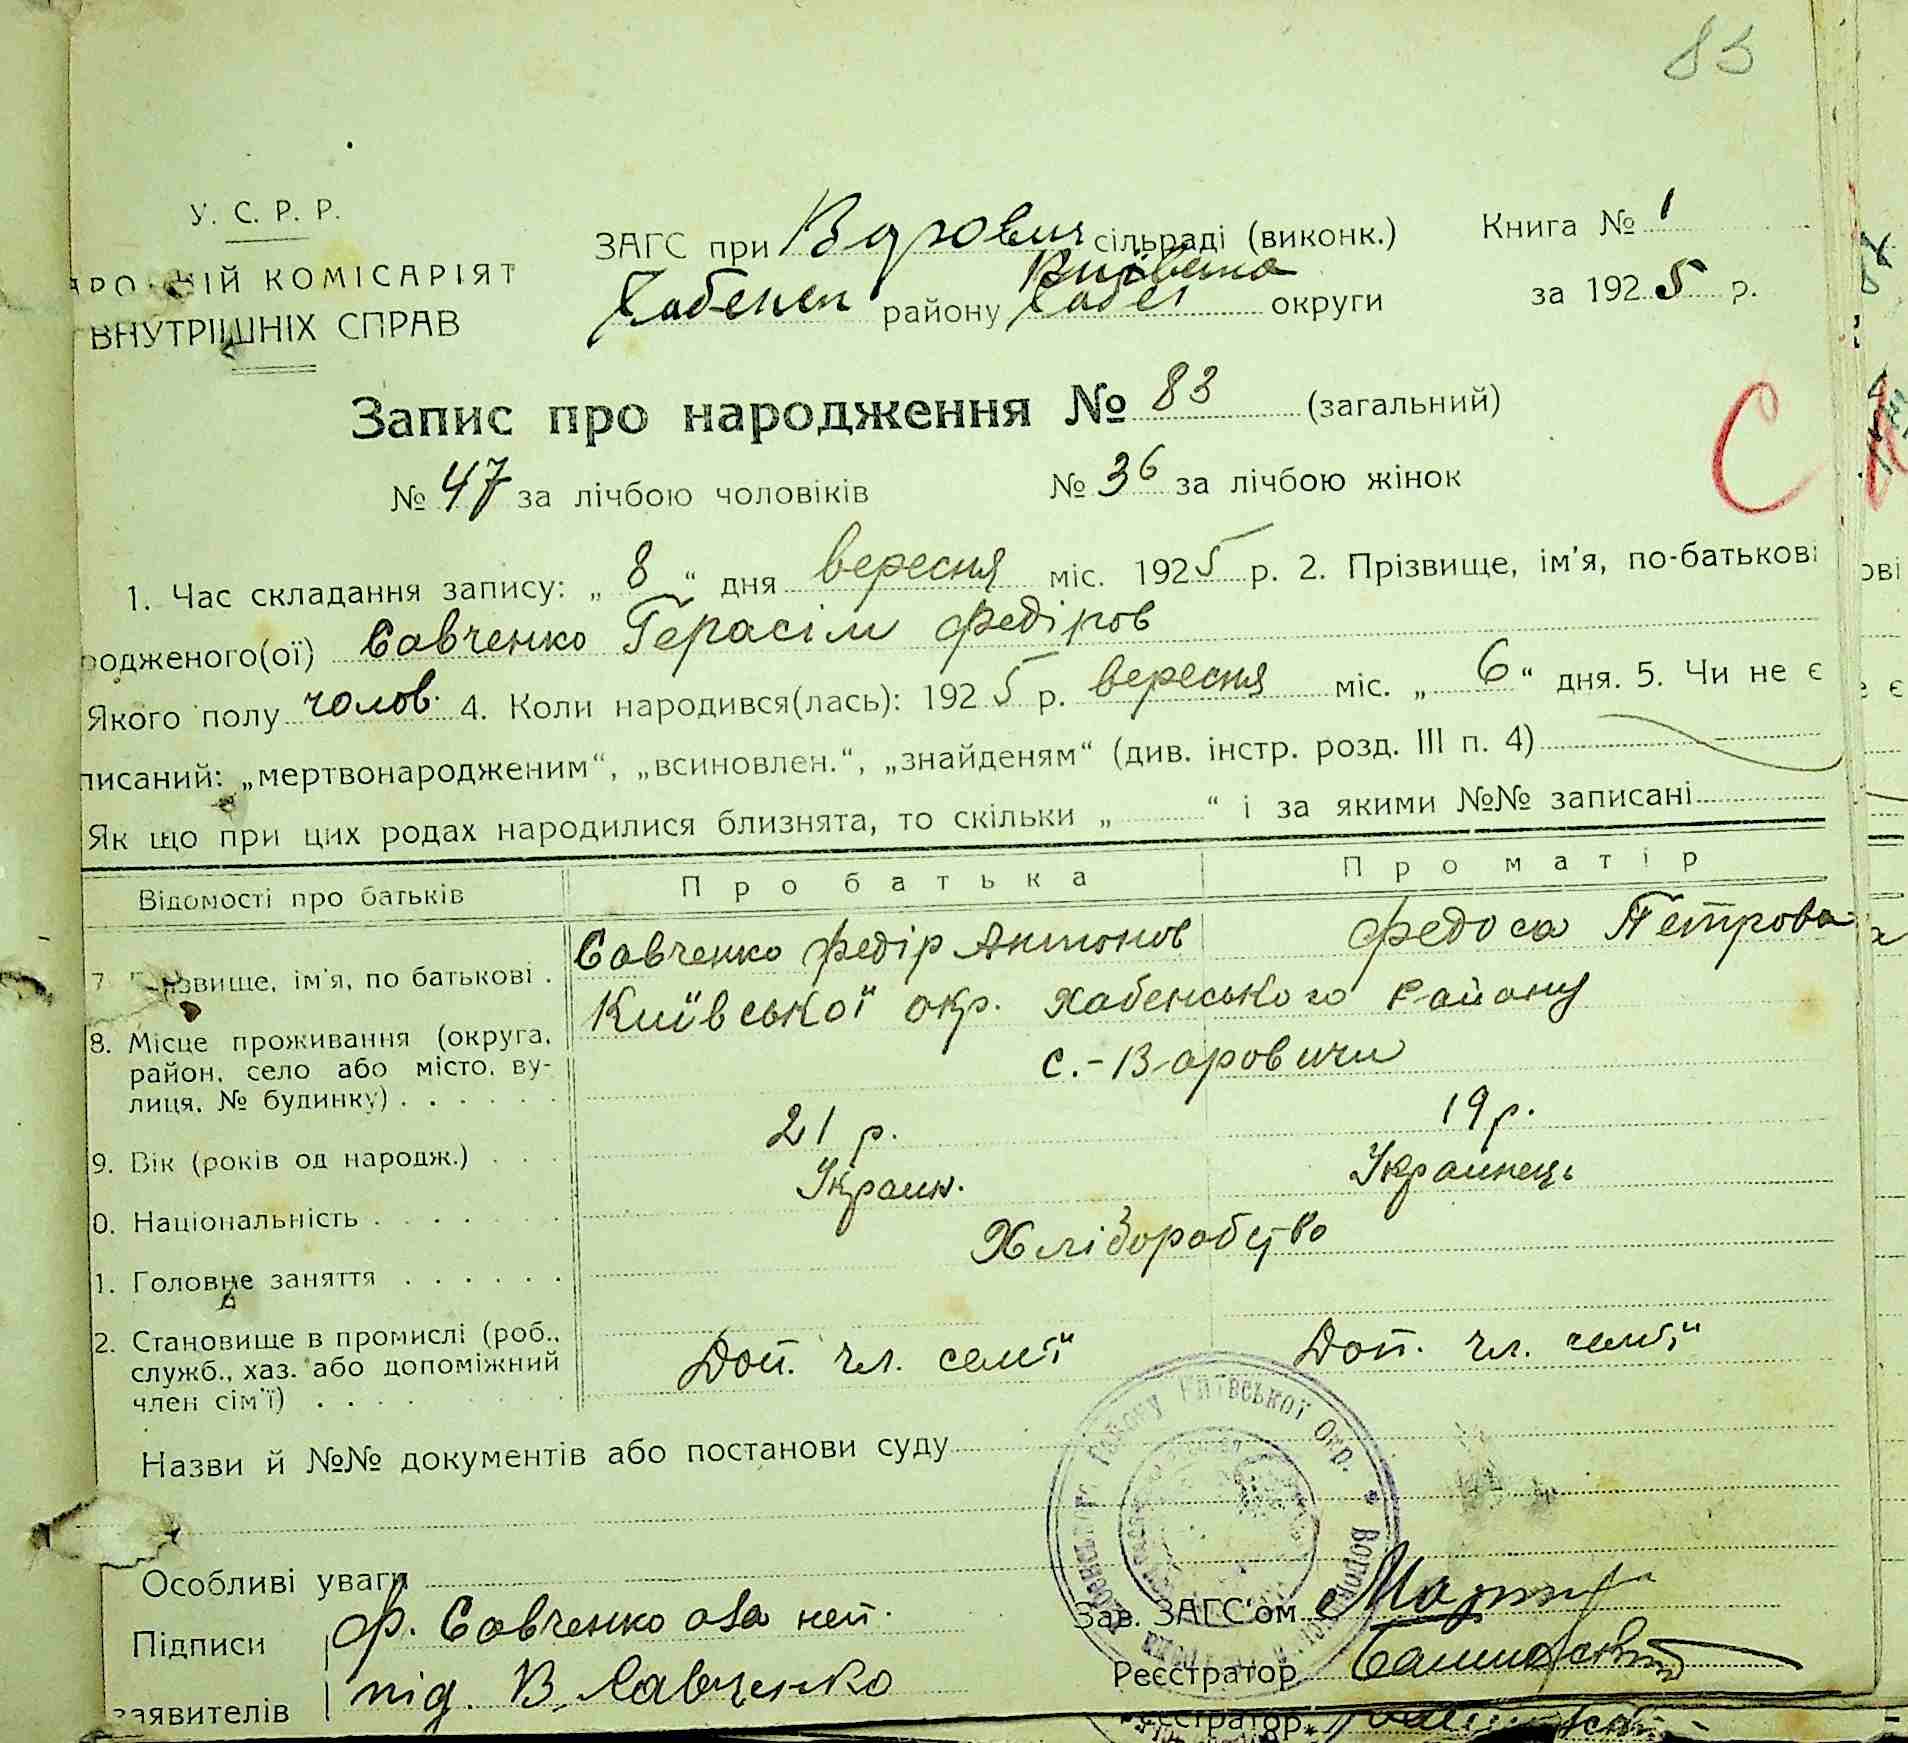 83
У. С. Р. Р.
ЗАГС при Варович сільраді (виконк.) Книга № 1
КОМІСАРІЯТ
Київська
Хабенск району Хабен округи за 1925 р.
ВНУТРІШНІХ СПРАВ
Запис про народження № 83 (загальний)
С
№ 47 за лічбою чоловіків № 36 за лічбою жінок
1. Час складання запису: „ 8 “ дня вересня міс. 1925 р. 2. Прізвище, ім’я, по-батькові
родженого(ої) Савченко Герасім Федіров
Якого полу чолов. 4. Коли народився(лась): 1925 р. вересня міс. „ 6 “ дня. 5. Чи не є
писаний: „мертвонародженим“, „всиновлен.“, „знайденям“ (див. інстр. розд. III п. 4)
Як що при цих родах народилися близнята, то скільки „ “ і за якими №№ записані
Відомості про батьків Про батька Про матір
7. ім’я, по батькові . Савченко Федір Антонов Федоса Петрова
8. Місце проживання (округа, Київської окр. Хабенського Району
район, село або місто, ву- с.-Варовичи
лиця, № будинку) . . . . . .
9. Вік (років од народж.) . . . 21 р. 19 р.
0. Національність . . . . . . . Украин. Украинець
1. Головне заняття . . . . . . Хліборобство
2. Становище в промислі (роб.,
служб., хаз. або допоміжний Доп. чл. семї Доп. чл. семї
член сім’ї) . . . .
Назви й №№ документів або постанови суду
Району Київської Окр. *
Особливі уваги
Підписи Ф. Савченко а за неп.
Зав. ЗАГС’ом
заявителів під. В. Савченко
Реєстратор
Реєстратор